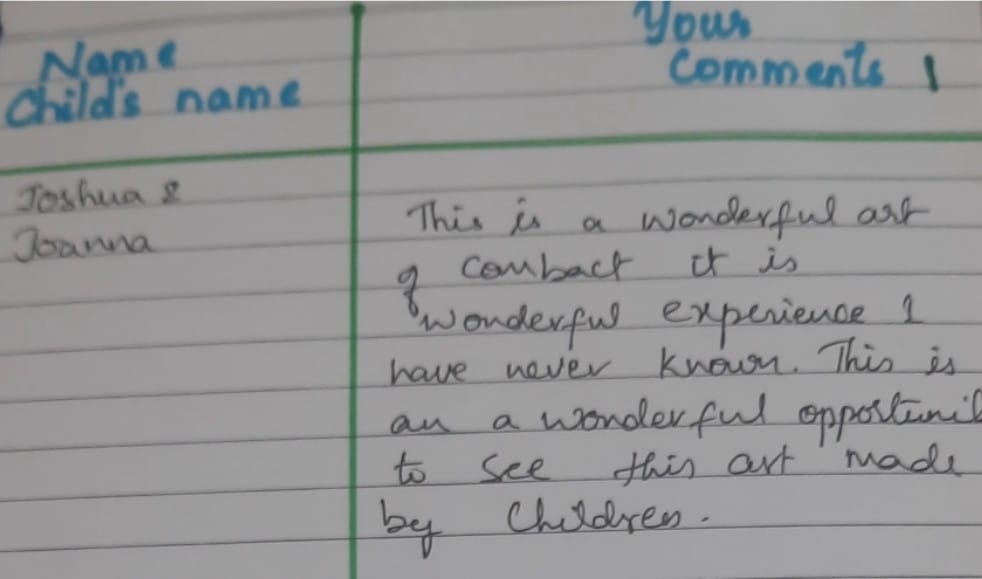 Name
Child's name
Your
Comments
Joshua &
Joanna
This is a wonderful art
of combact it is
wonderful experience I
have never known. This is
an a wonderful opportunit
to see this art made
by Children.